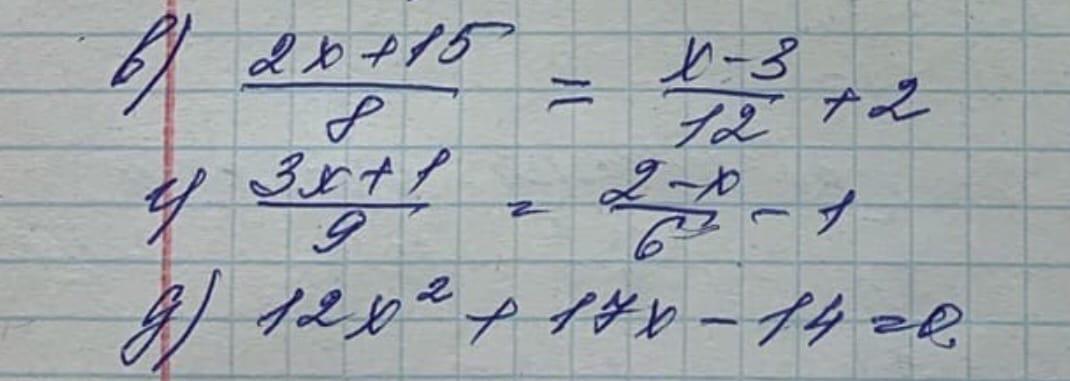 в) (2x+15)/8 = (x-3)/12 + 2
г) (3x+1)/9 = (2-x)/6 - 1
д) 12x² + 17x - 14 = 0